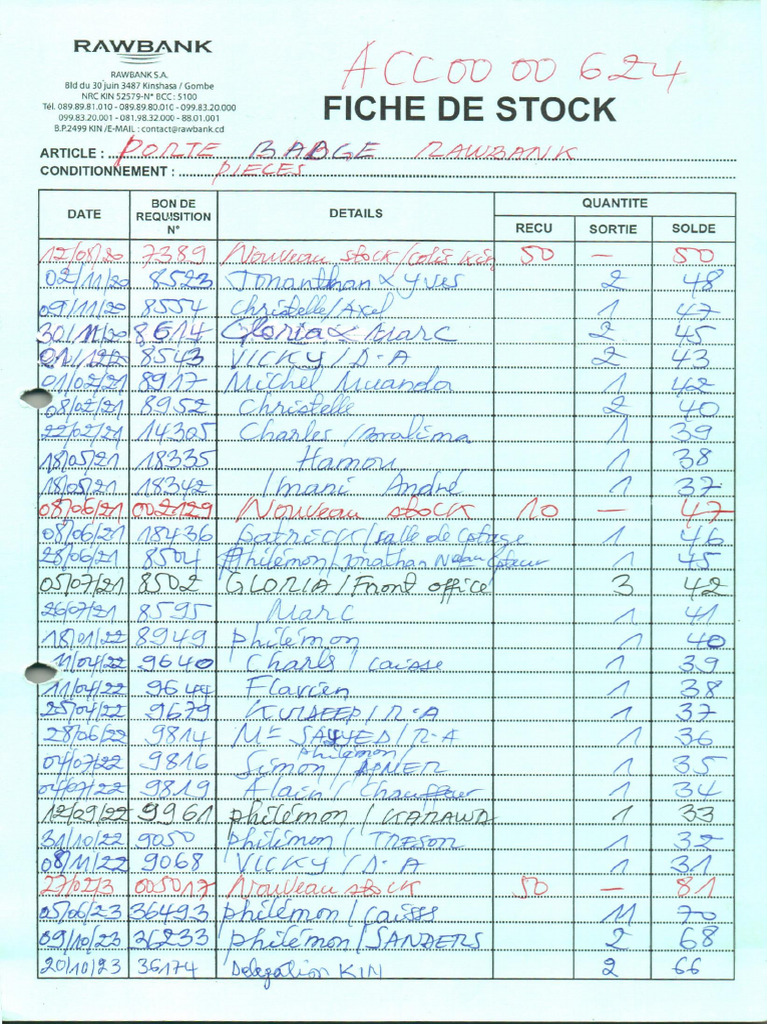 RAWBANK
RAWBANK S.A.
Bld du 30 juin 3487 Kinshasa / Gombe
NRC KIN 52579-N° BCC : 5100
Tél. 089.89.81.010 - 089.89.80.010 - 099.83.20.000
099.83.20.001 - 081.98.32.000 - 88.01.001
B.P.2499 KIN /E-MAIL : contact@rawbank.cd
ACC00 00 624
FICHE DE STOCK
ARTICLE : PORTE BABGE RAWBANK
CONDITIONNEMENT : PIECES
DATE BON DE REQUISITION N° DETAILS QUANTITE
RECU SORTIE SOLDE
12/08/20 7389 Nouveau stock/colis Kin 50 — 50
02/11/20 8523 Jonanthan & Yves 2 48
09/11/20 8554 Christelle/Axel 1 47
30/11/20 8614 Gloria & Marc 2 45
01/12/20 8543 VICKY / D-A 2 43
01/02/21 8917 Michel Muanda 1 42
08/02/21 8952 Christelle 2 40
22/02/21 14305 Charles / 1 39
18/05/21 18335 Hamou 1 38
18/05/21 18342 Imani André 1 37
08/06/21 002129 Nouveau stock 10 — 47
08/06/21 18436 Patrick/salle de 1 46
28/06/21 8504 Philémon/Jonathan 1 45
05/07/21 8502 GLORIA / Front office 3 42
26/07/21 8595 Marc 1 41
18/01/22 8949 philémon 1 40
11/04/22 9640 Charls / caisse 1 39
11/04/22 9644 Flavien 1 38
25/04/22 9679 KULDEEP / R-A 1 37
28/06/22 9814 Mr SAYYED / R-A 1 36
philémon/
04/07/22 9816 Simon / 1 35
04/07/22 9819 Alain / Chauffeur 1 34
12/09/22 9961 philémon / KANAWA 1 33
31/10/22 9050 philémon / TRESOR 1 32
08/11/22 9068 VICKY / D-A 1 31
27/02/3 005017 Nouveau stock 50 — 81
05/06/23 36493 philémon / caisse 11 70
09/10/23 36233 philémon/SANDERS 2 68
20/10/23 36174 Delegation KIN 2 66